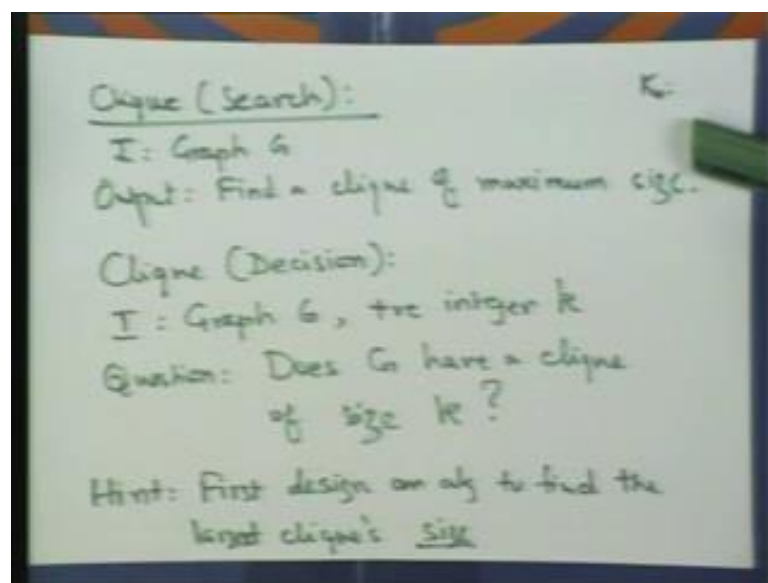 Clique (Search):
K
I: Graph G
Output: Find a clique of maximum size.
Clique (Decision):
I: Graph G, +ve integer k
Question: Does G have a clique
of size k?
Hint: First design an alg to find the
largest clique's size